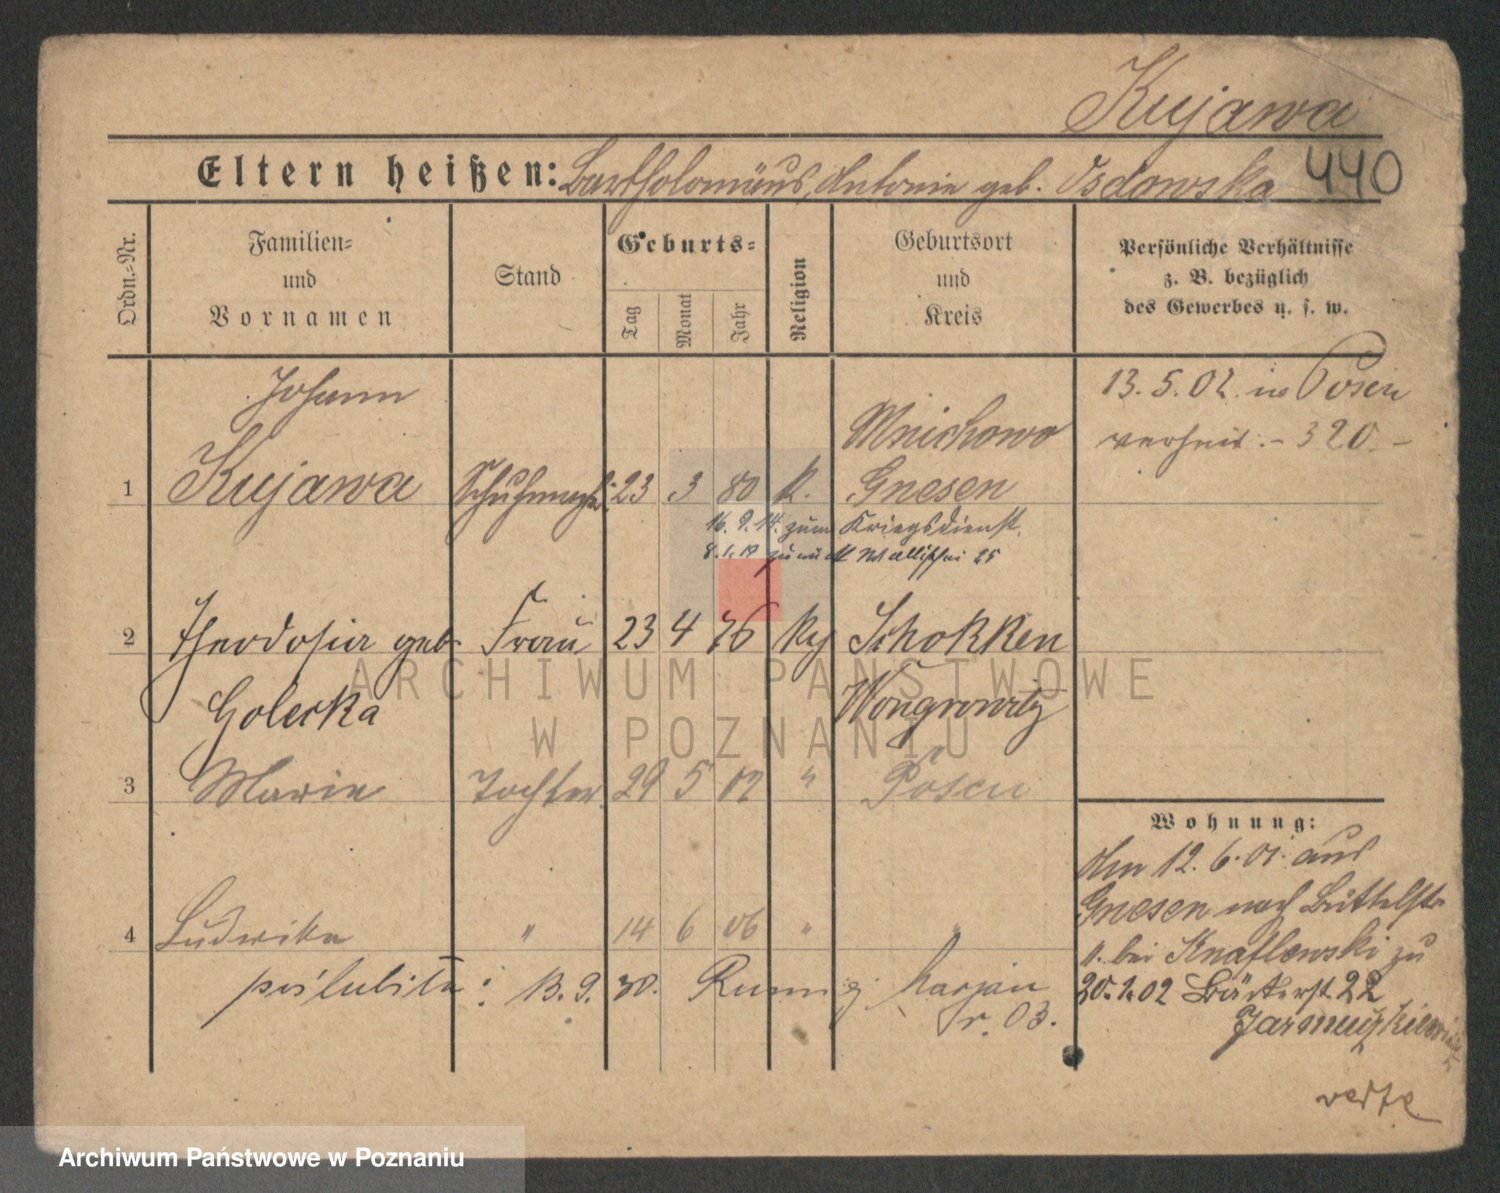 Kujawa
Eltern heißen: Bartholomäus, Antonie geb. Osdowska 440
Ordn.=Nr.
Familien=
und
Vornamen
Stand
Geburts=
Tag
Monat
Jahr
Religion
Geburtsort
und
Kreis
Persönliche Verhältnisse
z. B. bezüglich
des Gewerbes u. s. w.
Johann
Mnichowo
13.5.02. in Posen
verheir. - 320.-
1 Kujawa Schuhmacher 23 3 80 k. Gnesen
16.9.14. zum Kriegsdienst.
8.1.19 zurück Wallischei 25
2 Theodosia geb. Frau 23 4 76 k Schokken
Golecka Wongrowitz
3 Marie Tochter 29 5 02 " Posen
Wohnung:
Am 12.6.01. aus
Gnesen nach Büttelstr.
11. bei Knaflewski zu
20.1.02 Bäckerst. 22
4 Ludwika " 14 6 06 " "
13.9.
r. 03.
verte
ARCHIWUM PAŃSTWOWE
W POZNANIU
Archiwum Państwowe w Poznaniu